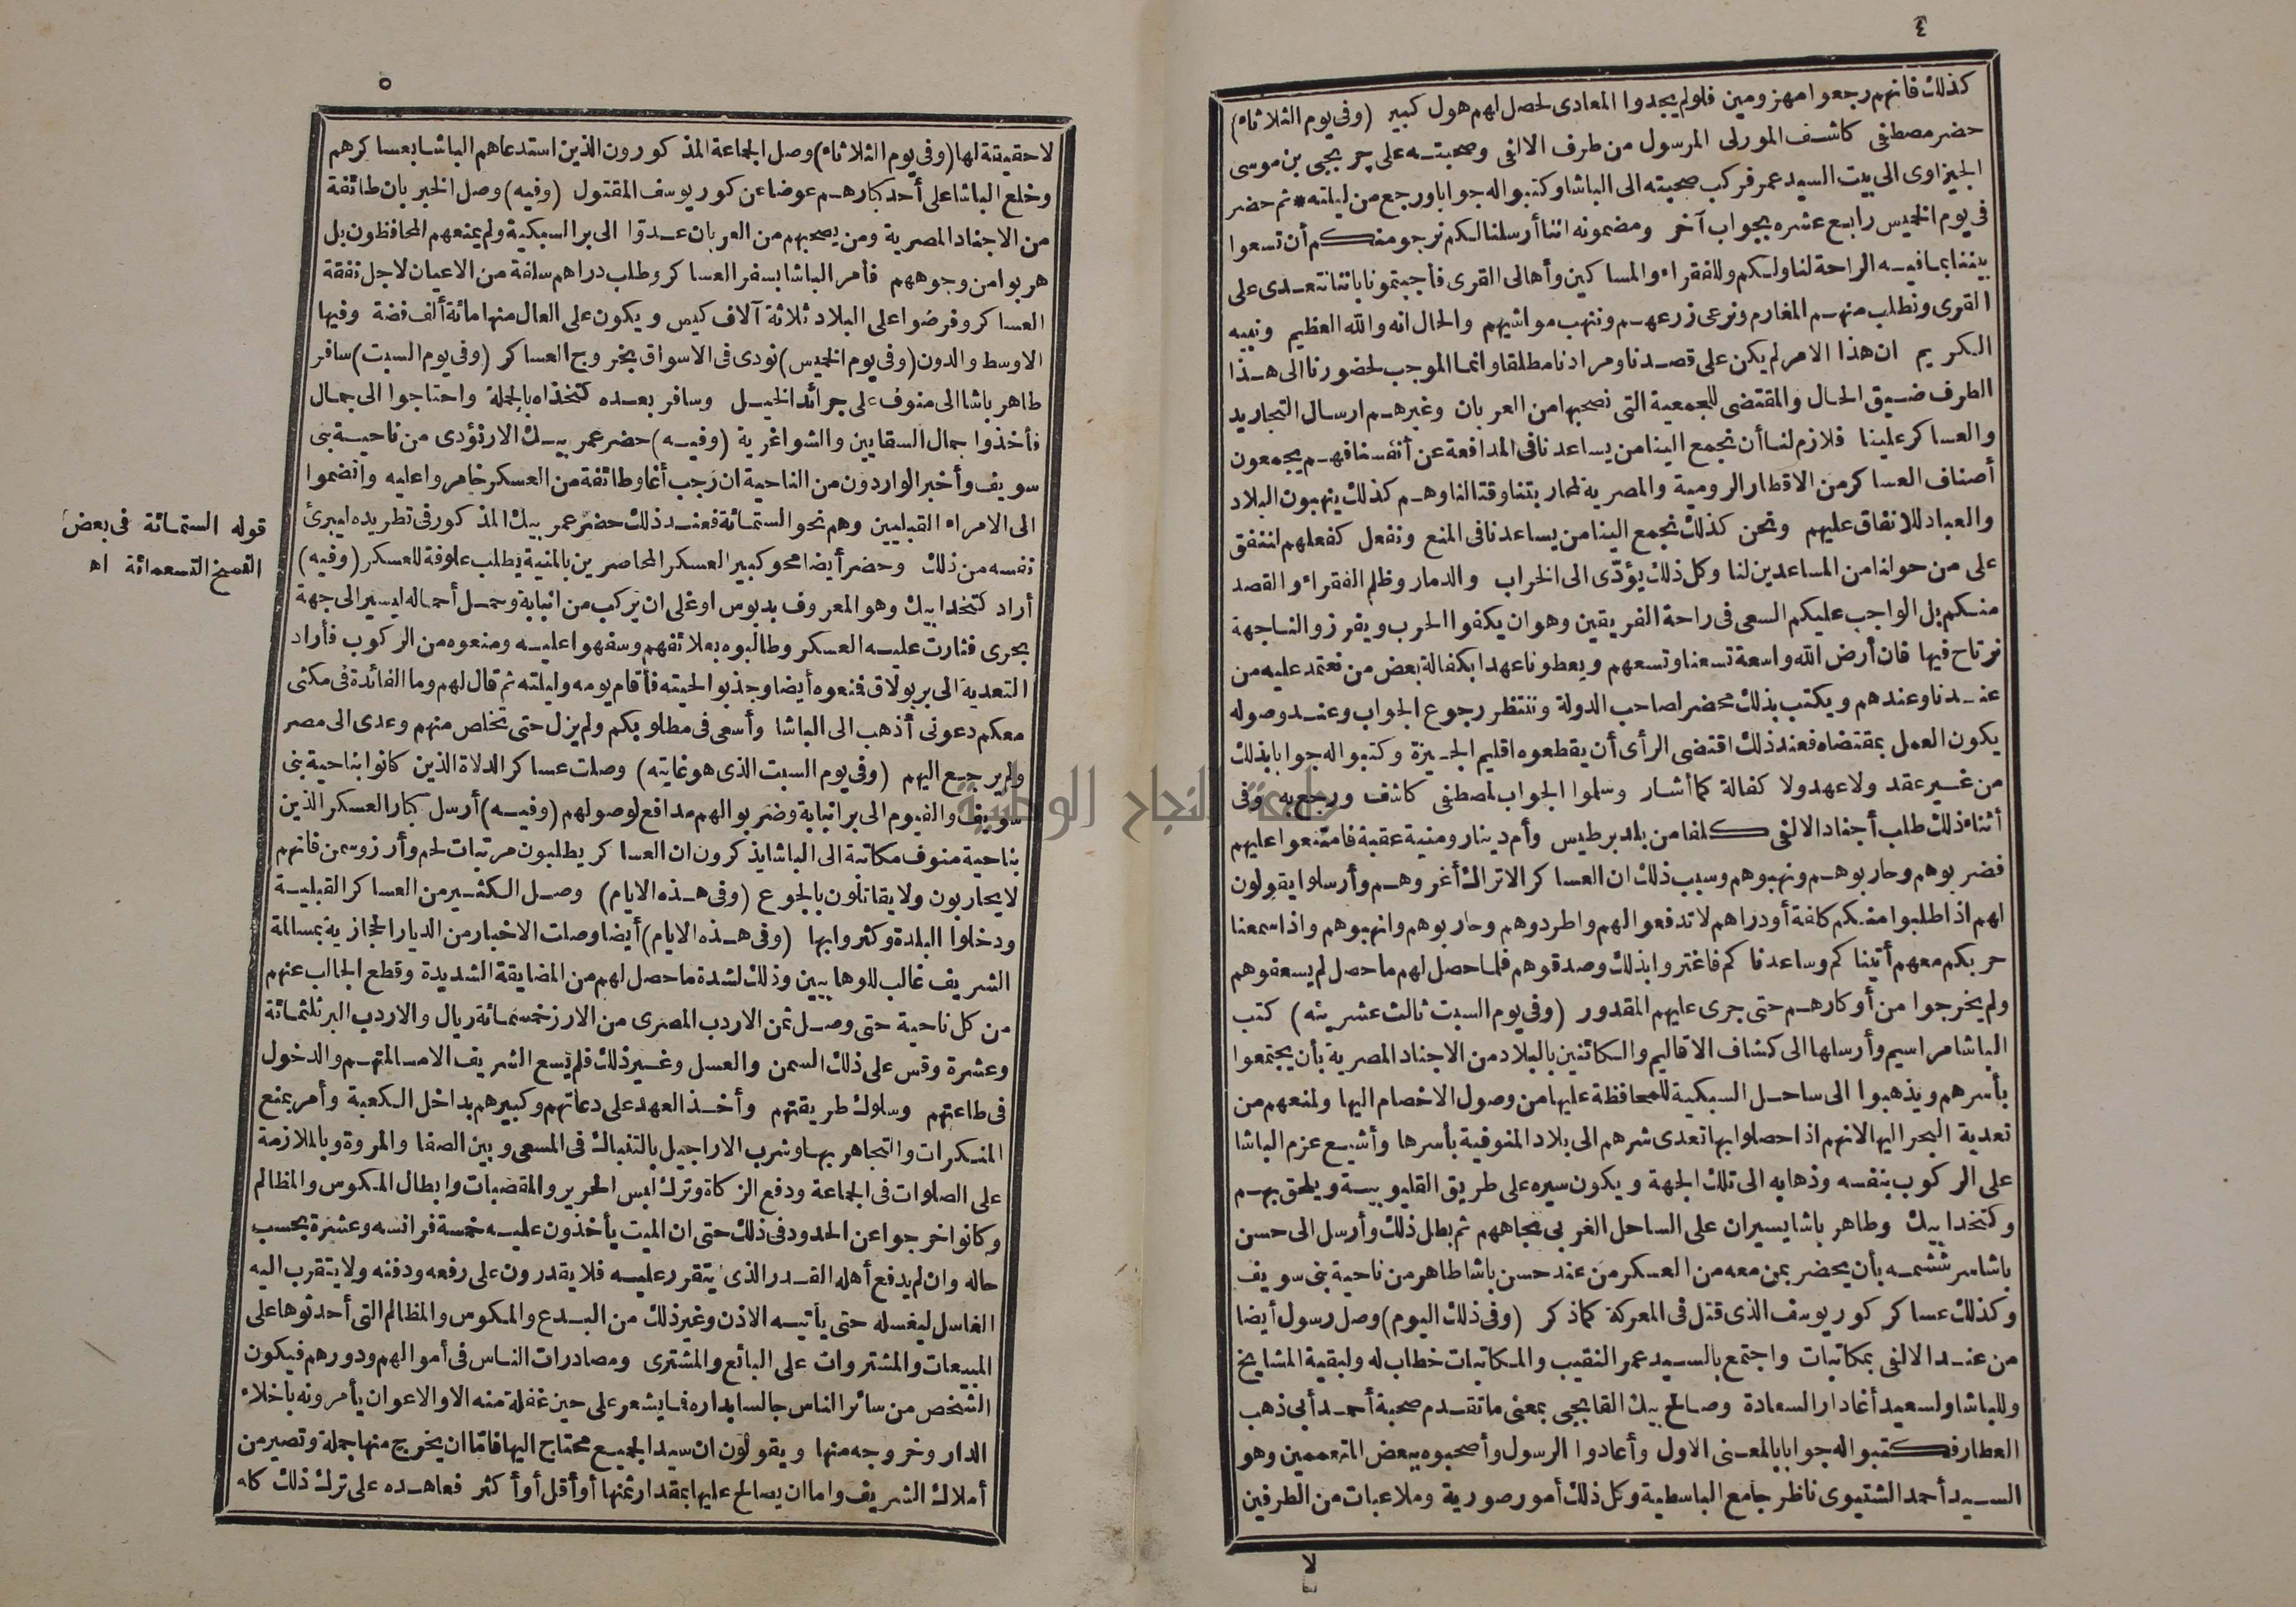 ٤
كذلك فانهم رجعوا مهزومين فلولم يجدوا المعادى لحصل لهم هول كبير (وفى يوم الثلاثاء)
حضر مصطفى كاشف المورلى المرسول من طرف الالفى وصحبته على جربجى بن موسى
الجيزاوى الى بيت السيد عمر فركب صحبته الى الباشا وكتبوا له جوابا ورجع من ليلته * ثم حضر
فى يوم الخميس رابع عشره بجواب آخر ومضمونه اننا أرسلنا لكم نرجو منكم أن تسعوا
بيننا بما فيه الراحة لنا ولكم وللفقراء والمساكين وأهالى القرى فأجبتمونا باننا نتعدى على
القرى ونطلب منهم المغارم ونرعى زرعهم وننهب مواشيهم والحال انه والله العظيم ونبيه
الكريم ان هذا الامر لم يكن على قصدنا ومرادنا مطلقا وانما الموجب لحضورنا الى هذا
الطرف ضيق الحال والمقتضى للجمعية التى نصحبها من العربان وغيرهم ارسال التجاريد
والعساكر علينا فلازم لنا أن نجمع الينا من يساعدنا فى المدافعة عن أنفسنا فهم يجمعون
أصناف العساكر من الاقطار الرومية والمصرية لمحاربتنا وقتالنا وهم كذلك ينهبون البلاد
والعباد للانفاق عليهم ونحن كذلك نجمع الينا من يساعدنا فى المنع ونفعل كفعلهم لننفق
على من حولنا من المساعدين لنا وكل ذلك يؤدّى الى الخراب والدمار وظلم الفقراء والقصد
منكم بل الواجب عليكم السعى فى راحة الفريقين وهو ان يكفوا الحرب ويفرزوا لنا جهة
نرتاح فيها فان أرض الله واسعة تسعنا وتسعهم ويعطونا عهدا بكفالة بعض من نعتمد عليه من
عندنا وعندهم ويكتب بذلك محضر لصاحب الدولة وننتظر رجوع الجواب وعند وصوله
يكون العمل بمقتضاه فعند ذلك اقتضى الرأى أن يقطعوه اقليم الجيزة وكتبوا له جوابا بذلك
من غير عقد ولا عهد ولا كفالة كما أشار وسلموا الجواب لمصطفى كاشف ورجع به وفى
أثناء ذلك طلب أجناد الالفى كلفا من بلد برطيس وأم دينار ومنية عقبة فامتنعوا عليهم
فضربوهم وحاربوهم ونهبوهم وسبب ذلك ان العساكر الاتراك أغروهم وأرسلوا يقولون
لهم اذا طلبوا منكم كلفة أو دراهم لا تدفعوا لهم واطردوهم وحاربوهم وانهبوهم واذا سمعنا
حربكم معهم أتيناكم وساعدناكم فاغتروا بذلك وصدقوهم فلما حصل لهم ما حصل لم يسعفوهم
ولم يخرجوا من أوكارهم حتى جرى عليهم المقدور (وفى يوم السبت ثالث عشرينه) كتب
الباشا مراسيم وأرسلها الى كشاف الاقاليم والكائنين بالبلاد من الاجناد المصرية بأن يجتمعوا
بأسرهم ويذهبوا الى ساحل السبكية للمحافظة عليها من وصول الاخصام اليها ولمنعهم من
تعدية البحر اليها لانهم اذا حصلوا بها تعدى شرهم الى بلاد المنوفية بأسرها وأشيع عزم الباشا
على الركوب بنفسه وذهابه الى تلك الجهة ويكون سيره على طريق القليوبية ويلحق بهم
وكتخدا بيك وطاهر باشا يسيران على الساحل الغربى تجاههم ثم بطل ذلك وأرسل الى حسن
باشا سرششمه بأن يحضر بمن معه من العسكر من عند حسن باشا طاهر من ناحية بنى سويف
وكذلك عساكر كور يوسف الذى قتل فى المعركة كما ذكر (وفى ذلك اليوم) وصل رسول أيضا
من عند الالفى بمكاتبات واجتمع بالسيد عمر النقيب والمكاتبات خطاب له ولبقية المشايخ
وللباشا ولسعيد أغا دار السعادة وصالح بيك القابجى بمعنى ما تقدم صحبة أحمد أبى ذهب
العطار فكتبوا له جوابا بالمعنى الاول وأعادوا الرسول وأصحبوه ببعض المتعممين وهو
السيد أحمد الشتيوى ناظر جامع الباسطية وكل ذلك أمور صورية وملاعبات من الطرفين
لا
٥
لا حقيقة لها (وفى يوم الثلاثاء) وصل الجماعة المذكورون الذين استدعاهم الباشا بعساكرهم
وخلع الباشا على أحد كبارهم عوضا عن كور يوسف المقتول (وفيه) وصل الخبر بان طائفة
من الاجناد المصرية ومن يصحبهم من العربان عدّوا الى بر السبكية ولم يمنعهم المحافظون بل
هربوا من وجوههم فأمر الباشا بسفر العساكر وطلب دراهم سلفة من الاعيان لاجل نفقة
العساكر وفرضوا على البلاد ثلاثة آلاف كيس ويكون على العال منها مائة ألف فضة وفيها
الاوسط والدون (وفى يوم الخميس) نودى فى الاسواق بخروج العساكر (وفى يوم السبت) سافر
طاهر باشا الى منوف على جرائد الخيل وسافر بعده كتخذاه بالجملة واحتاجوا الى جمال
فأخذوا جمال السقايين والشواغرية (وفيه) حضر عمر بيك الارنؤدى من ناحية بنى
سويف وأخبر الواردون من الناحية ان رجب أغا وطائفة من العسكر خامروا عليه وانضموا
الى الامراء القبليين وهم نحو الستمائة فعند ذلك حضر عمر بيك المذكور فى تطريده ليبرئ
نفسه من ذلك وحضر أيضا محو كبير العسكر المحاصرين بالمنية يطلب علوفة للعسكر (وفيه)
أراد كتخدا بيك وهو المعروف بدبوس اوغلى ان يركب من انبابة وحمل أحماله ليسير الى جهة
بحرى فثارت عليه العسكر وطالبوه بعلائفهم وسفهوا عليه ومنعوه من الركوب فأراد
التعدية الى بر بولاق فمنعوه أيضا وجذبوا لحيته فأقام يومه وليلته ثم قال لهم وما الفائدة فى مكثى
معكم دعونى أذهب الى الباشا وأسعى فى مطلوبكم ولم يزل حتى تخلص منهم وعدى الى مصر
ولم يرجع اليهم (وفى يوم السبت الذى هو غايته) وصلت عساكر الدلاة الذين كانوا بناحية بنى
سويف والفيوم الى بر انبابة وضربوا لهم مدافع لوصولهم (وفيه) أرسل كبار العسكر الذين
بناحية منوف مكاتبة الى الباشا يذكرون ان العساكر يطلبون مرتبات لحم وأرز وسمن فانهم
لا يحاربون ولا يقاتلون بالجوع (وفى هذه الايام) وصل الكثير من العساكر القبلية
ودخلوا البلدة وكثروا بها (وفى هذه الايام) أيضا وصلت الاخبار من الديار الحجازية بمسالمة
الشريف غالب للوهابيين وذلك لشدة ما حصل لهم من المضايقة الشديدة وقطع الجالب عنهم
من كل ناحية حتى وصل ثمن الاردب المصرى من الارز خمسمائة ريال والاردب البر ثلثمائة
وعشرة وقس على ذلك السمن والعسل وغير ذلك فلم يسع الشريف الا مسالمتهم والدخول
فى طاعتهم وسلوك طريقتهم وأخذ العهد على دعاتهم وكبيرهم بداخل الكعبة وأمر بمنع
المنكرات والتجاهر بها وشرب الاراجيل بالتنباك فى المسعى وبين الصفا والمروة وبالملازمة
على الصلوات فى الجماعة ودفع الزكاة وترك لبس الحرير والمقصبات وابطال المكوس والمظالم
وكانوا خرجوا عن الحدود فى ذلك حتى ان الميت يأخذون عليه خمسة فرانسه وعشرة بحسب
حاله وان لم يدفع أهله القدر الذى يتقرر عليه فلا يقدرون على رفعه ودفنه ولا يتقرب اليه
الغاسل ليغسله حتى يأتيه الاذن وغير ذلك من البدع والمكوس والمظالم التى أحدثوها على
المبيعات والمشتروات على البائع والمشترى ومصادرات الناس فى أموالهم ودورهم فيكون
الشخص من سائر الناس جالسا بداره فما يشعر على حين غفلة منه الا والاعوان يأمرونه باخلاء
الدار وخروجه منها ويقولون ان سيد الجميع محتاج اليها فامّا ان يخرج منها جملة وتصير من
أملاك الشريف واما ان يصالح عليها بمقدار ثمنها أو أقل أو أكثر فعاهده على ترك ذلك كله
قوله الستمائة فى بعض
النسخ التسعمائة اه
جامعة النجاح الوطنية